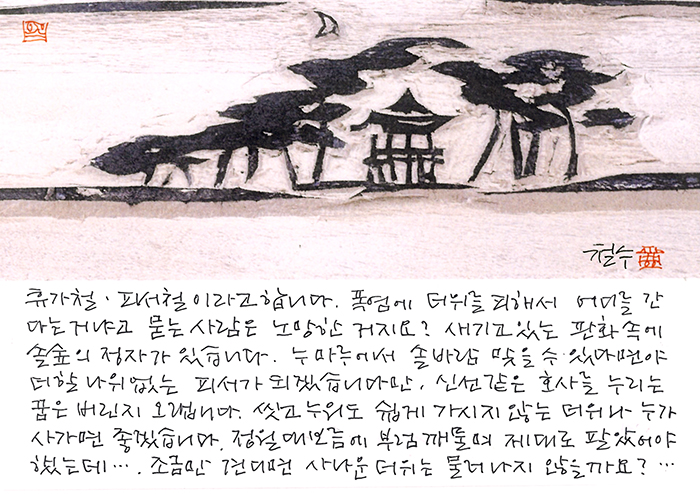 철수
휴가철·피서철이라고합니다. 폭염에 더위를 피해서 어디를 간
다는거냐고 묻는 사람은 노망한 거지요? 새기고있는 판화속에
솔숲의 정자가 있습니다. 누마루에서 솔바람 맞을수 있다면야
더할 나위없는 피서가 되겠습니다만, 신선같은 호사를 누리는
꿈은 버린지 오랩니다. 씻고누워도 쉽게 가시지 않는 더위나 누가
사가면 좋겠습니다. 정월대보름에 부럼깨물며 제대로 팔았어야
했는데…. 조금만 견디면 사나운더위는 물러나지 않을까요?…